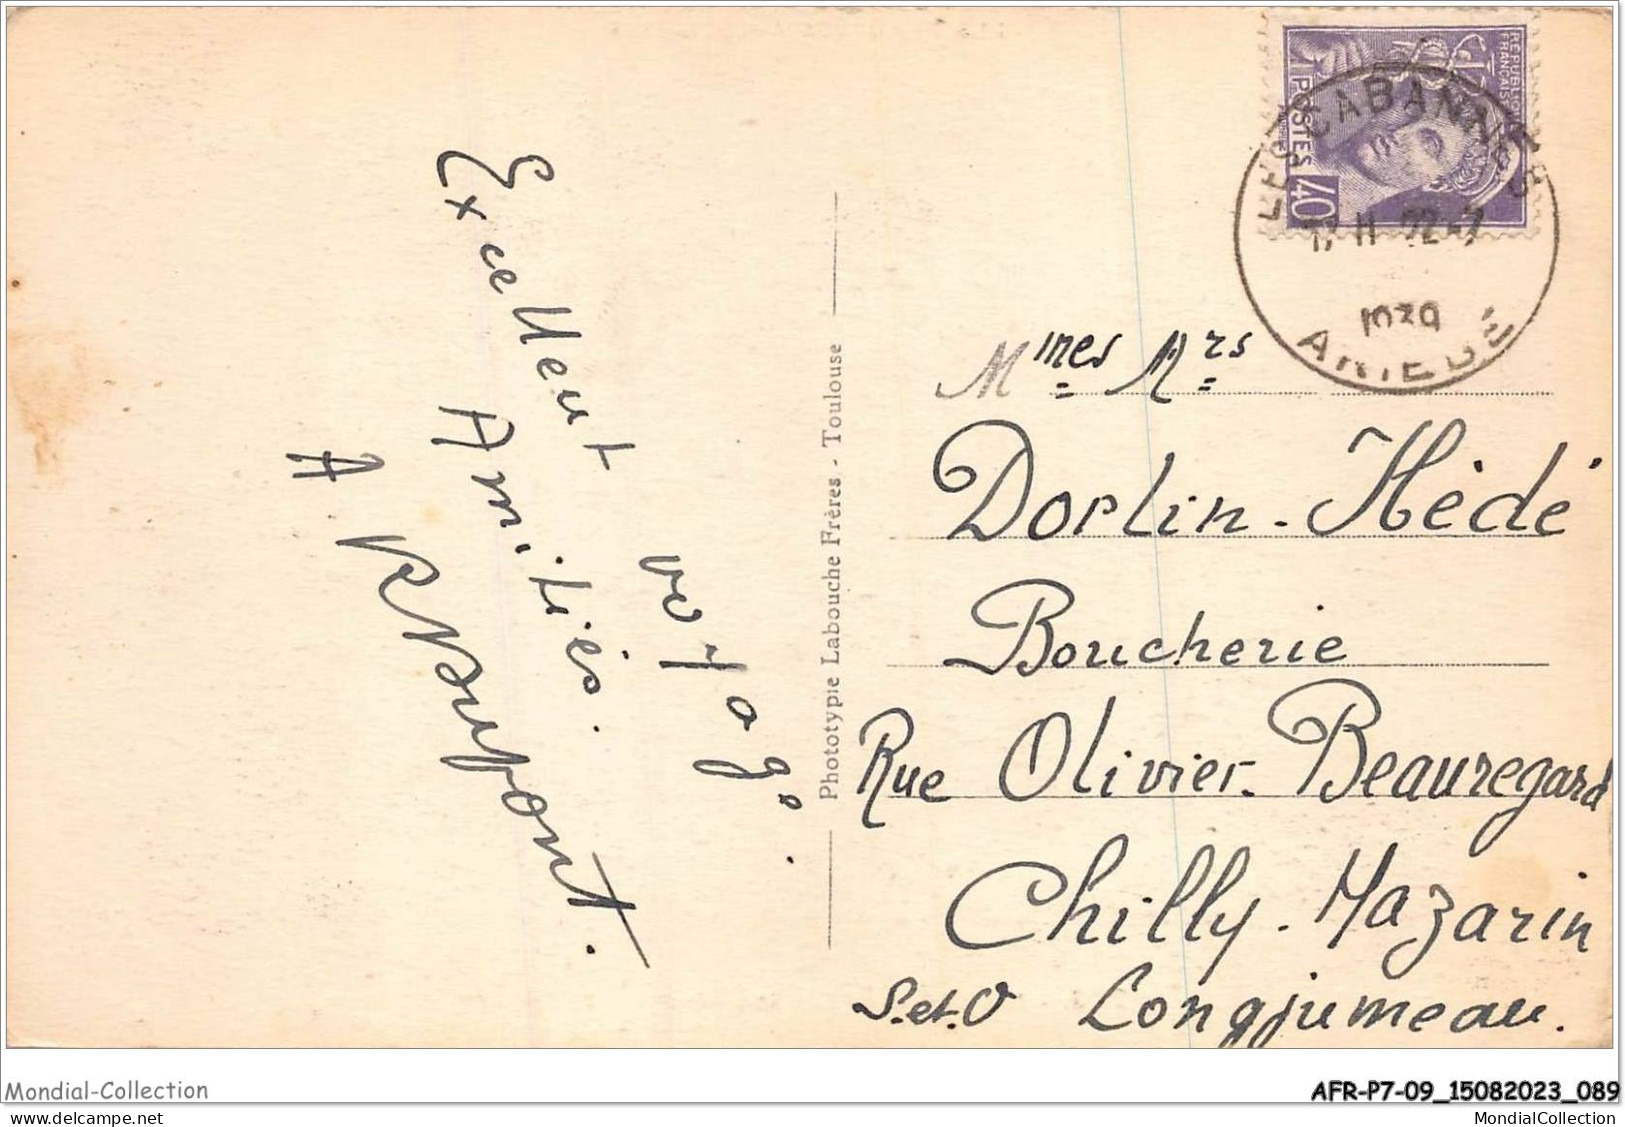 Excellent voyage.
Amitiés.
A
Phototypie Labouche Frères - Toulouse
RÉPUBLIQUE
FRANÇAISE
POSTES
40
LES CABANNES
1939
ARIEGE
Mmes Mrs
Dorlin-Hédé
Boucherie
Rue Olivier-Beauregard
Chilly-Mazarin
S.et.O Longjumeau.
Mondial-Collection
AFR-P7-09_15082023_089
www.delcampe.net
MondialCollection